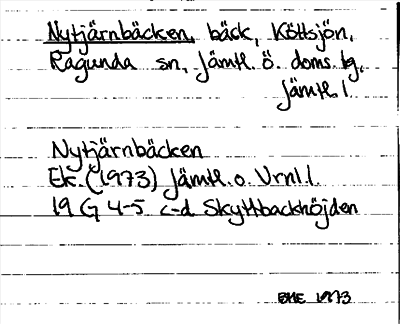 Nytjärnbäcken, bäck, Köttsjön,
Ragunda sn, Jämtl. ö. doms. tg,
Jämtl. l.
Nytjärnbäcken
Ek. (1973) Jämtl. o. Vrnl. l.
19 G 4-5 c-d Skyttbackhöjden
BHE 1973